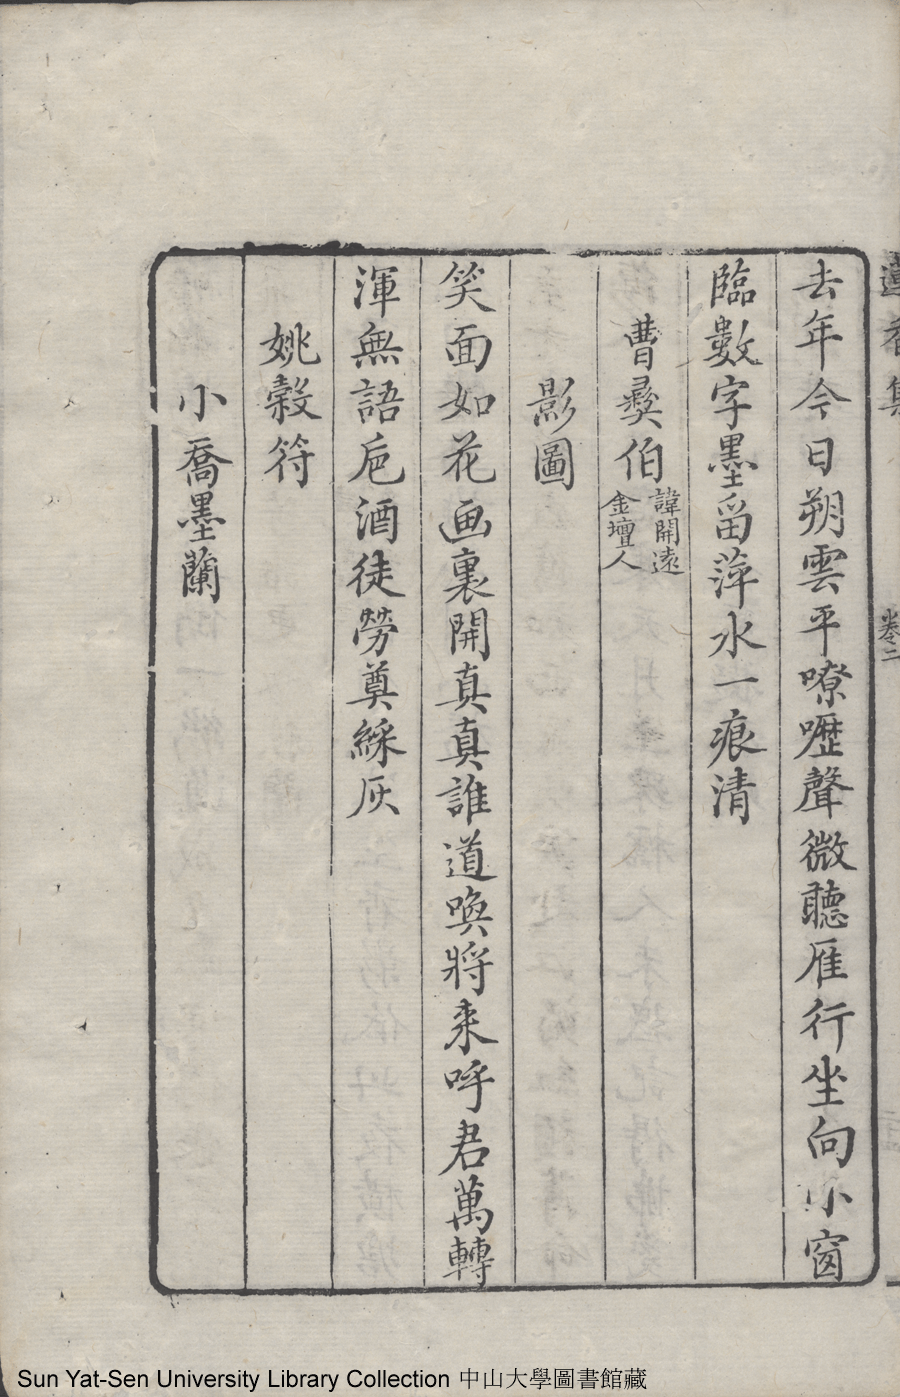 去年今日朔雲平嘹嚦聲微聽雁行坐向小窗
臨數字墨留萍水一痕清
曹彝伯
諱開遠
金壇人
影圖
笑面如花画裏開真真誰道喚將来呼君萬轉
渾無語卮酒徒勞奠綵灰
姚榖符
小喬墨蘭
卷二
Sun Yat-Sen University Library Collection 中山大學圖書館藏